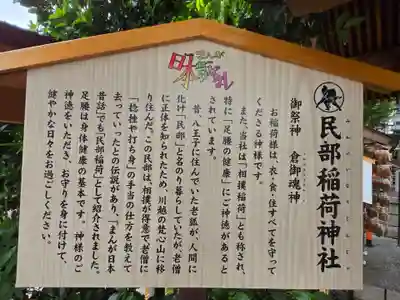 民部稲荷神社
御祭神　倉御魂神
お稲荷様は、衣・食・住すべてを守って
くださる神様です。
また、当社は「相撲稲荷」とも称され、
特に「足腰の健康」にご神徳があると
されています。
昔、八王子に住んでいた老狐が、人間に
化け「民部」と名のり暮らしていたが老僧
に正体を知られたため、川越の梵心山に移
り住んだ。この民部は、相撲が得意で老僧に
「捻挫や打ち身」の手当の仕方を教えて
去っていったとの伝説があり、「まんが日本
昔話」でも「民部稲荷」として紹介されました。
足腰は身体健康の基本です。神様のご
神徳をいただき、お守りを身に付けて、
健やかな日々をお過ごしください。